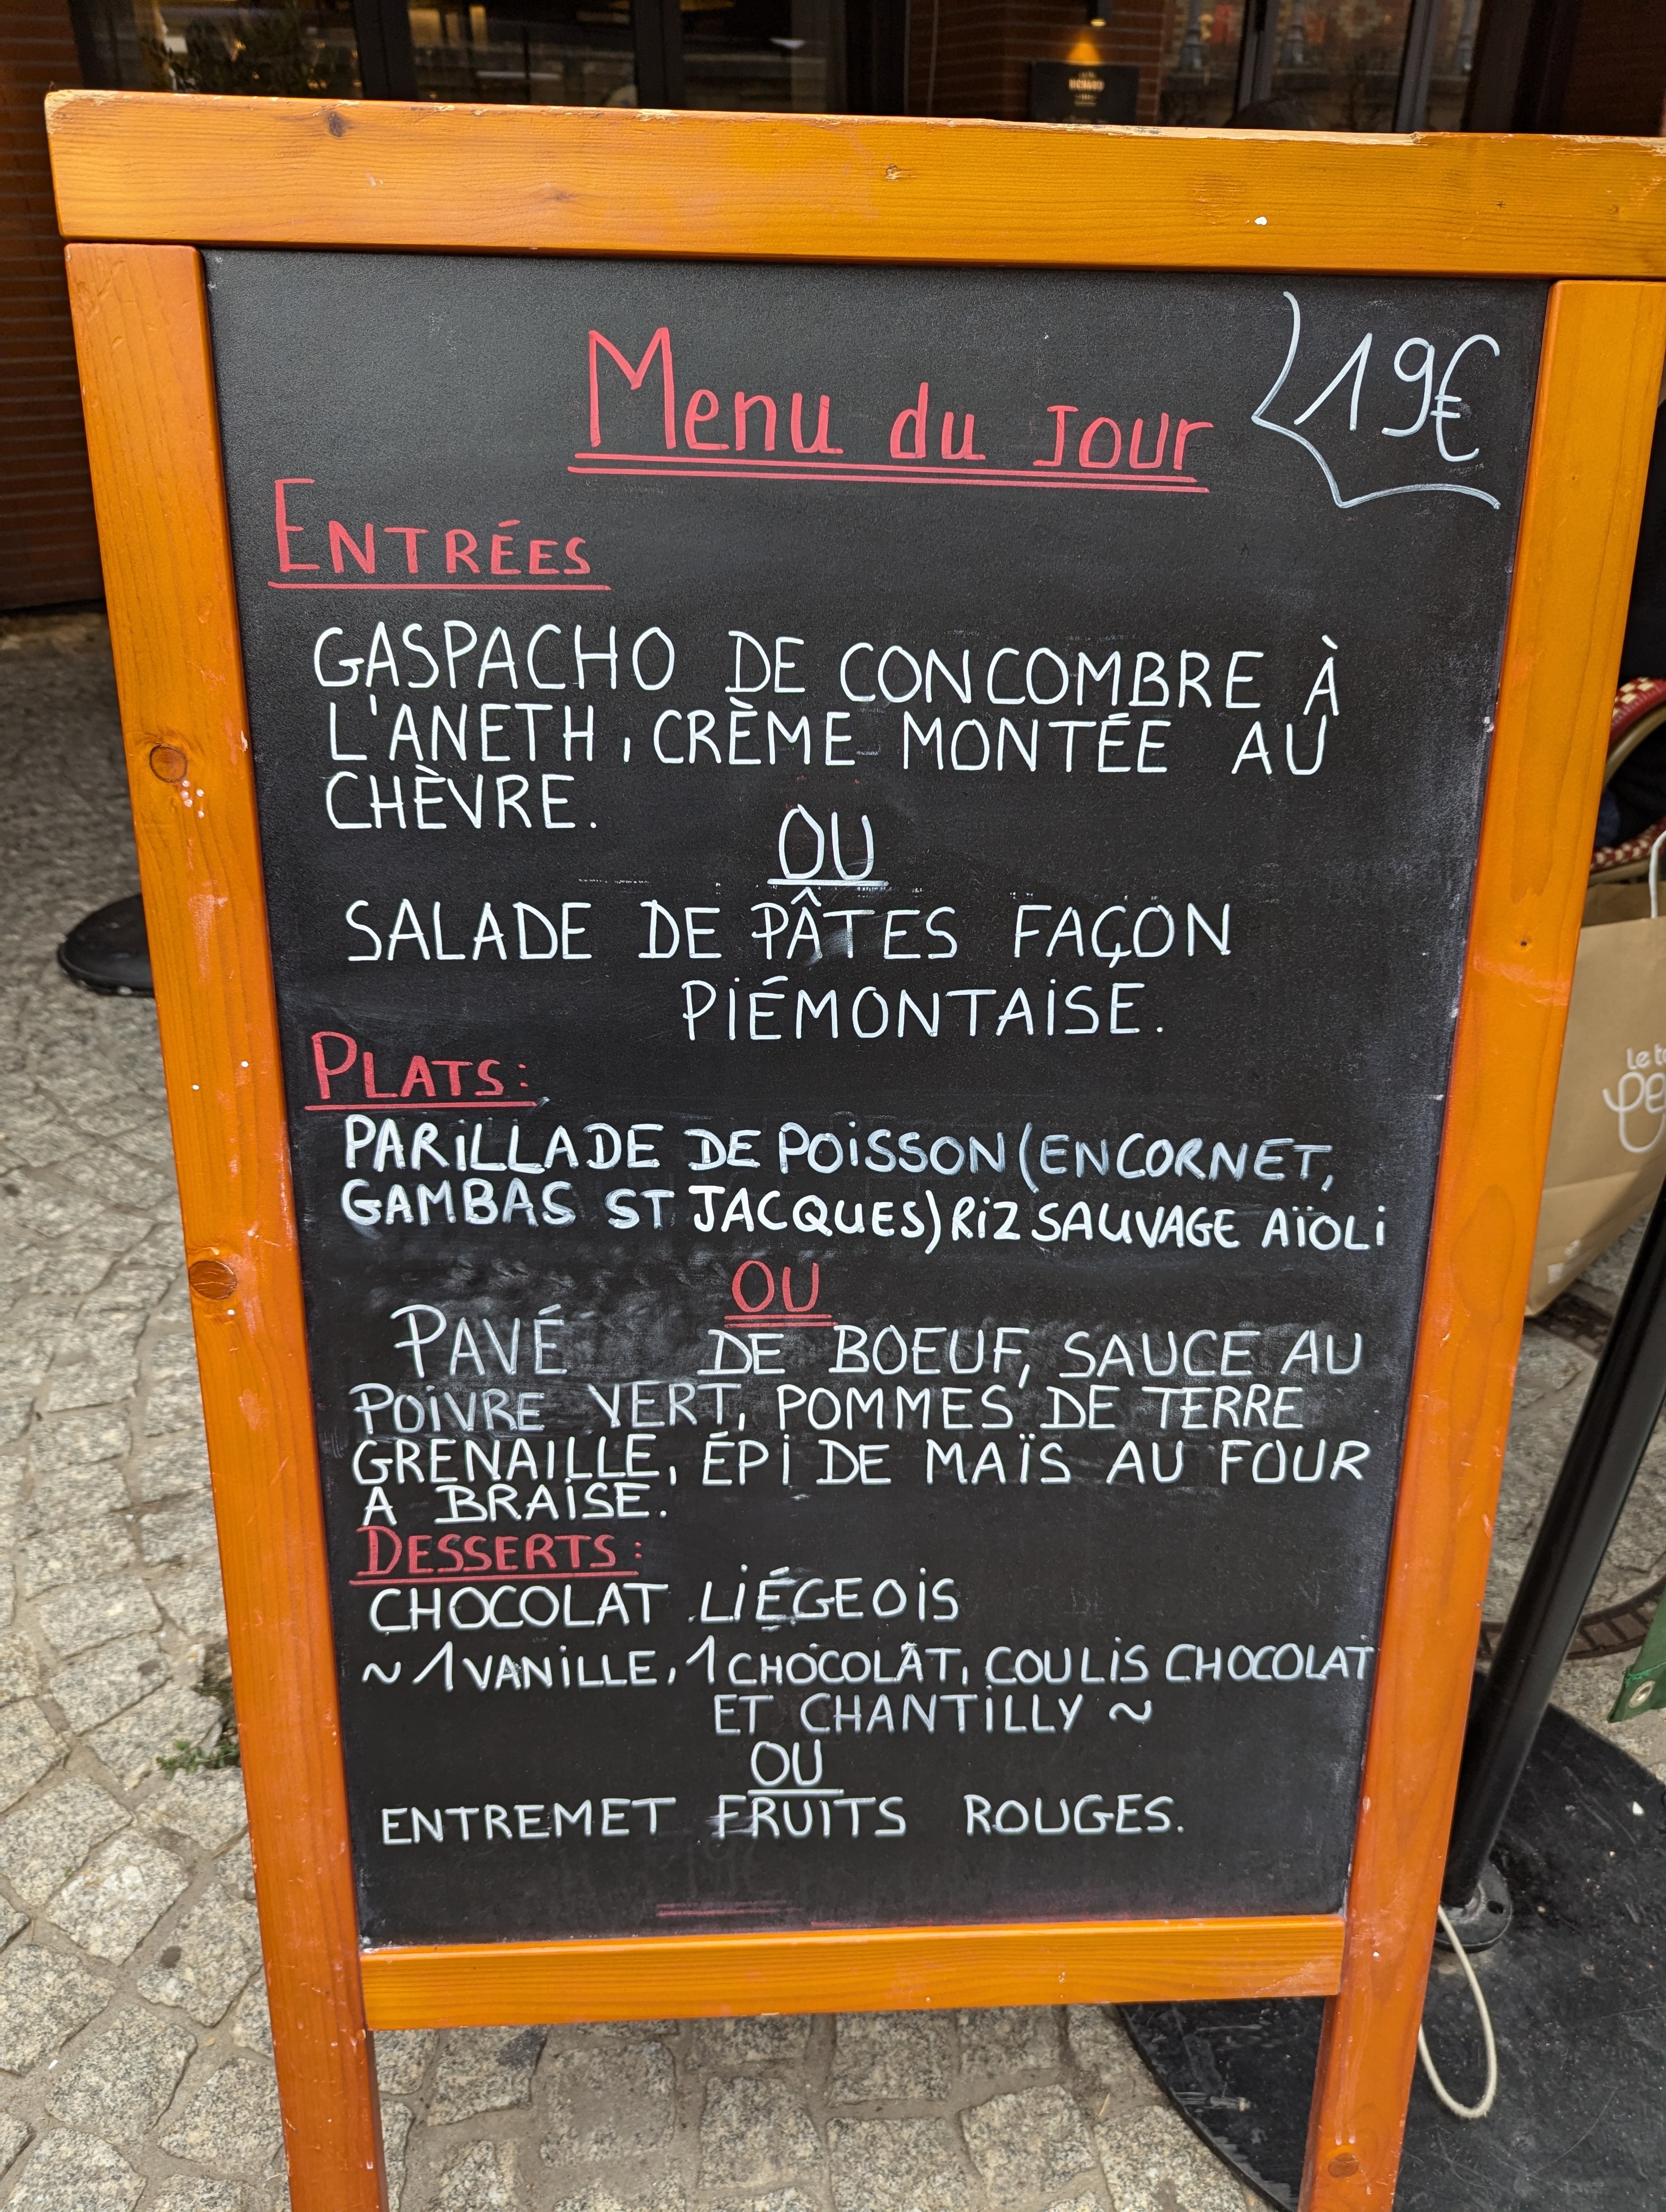 Menu du Jour
19€
ENTRÉES
GASPACHO DE CONCOMBRE À
L'ANETH, CRÈME MONTÉE AU
CHÈVRE.
OU
SALADE DE PÂTES FAÇON
PIÉMONTAISE.
PLATS:
PARILLADE DE POISSON (ENCORNET,
GAMBAS ST JACQUES) RIZ SAUVAGE AÏOLI
OU
PAVÉ DE BOEUF, SAUCE AU
POIVRE VERT, POMMES DE TERRE
GRENAILLE, ÉPI DE MAÏS AU FOUR
A BRAISE.
DESSERTS:
CHOCOLAT LIÉGEOIS
~ 1 VANILLE, 1 CHOCOLAT, COULIS CHOCOLAT
ET CHANTILLY ~
OU
ENTREMET FRUITS ROUGES.